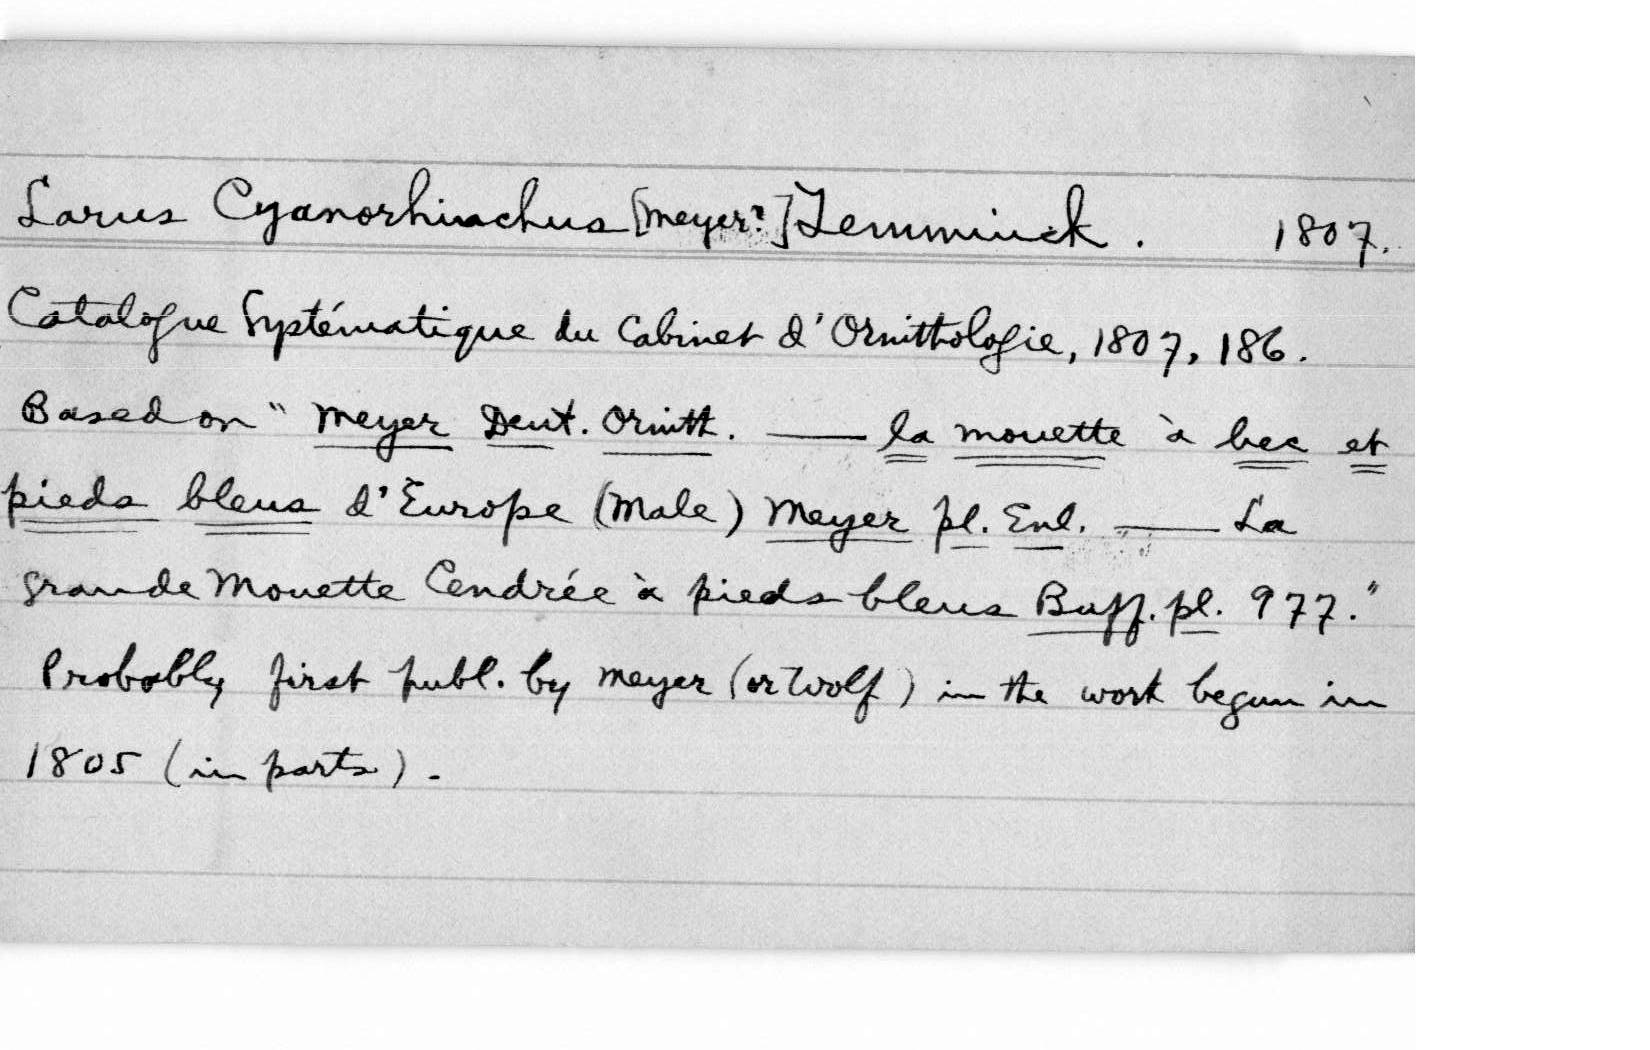 Larus Cyanorhinchus [Meyer?] Temminck. 1807.
Catalogue Systématique du Cabinet d'Ornithologie, 1807, 186.
Based on " Meyer Deut. Ornith. — la mouette à bec et
pieds bleus d'Europe (Male) Meyer pl. Enl. — La
grande Mouette Cendrée à pieds bleus Buff. pl. 977."
Probably first publ. by Meyer (or Wolf) in the work begun in
1805 (in parts).